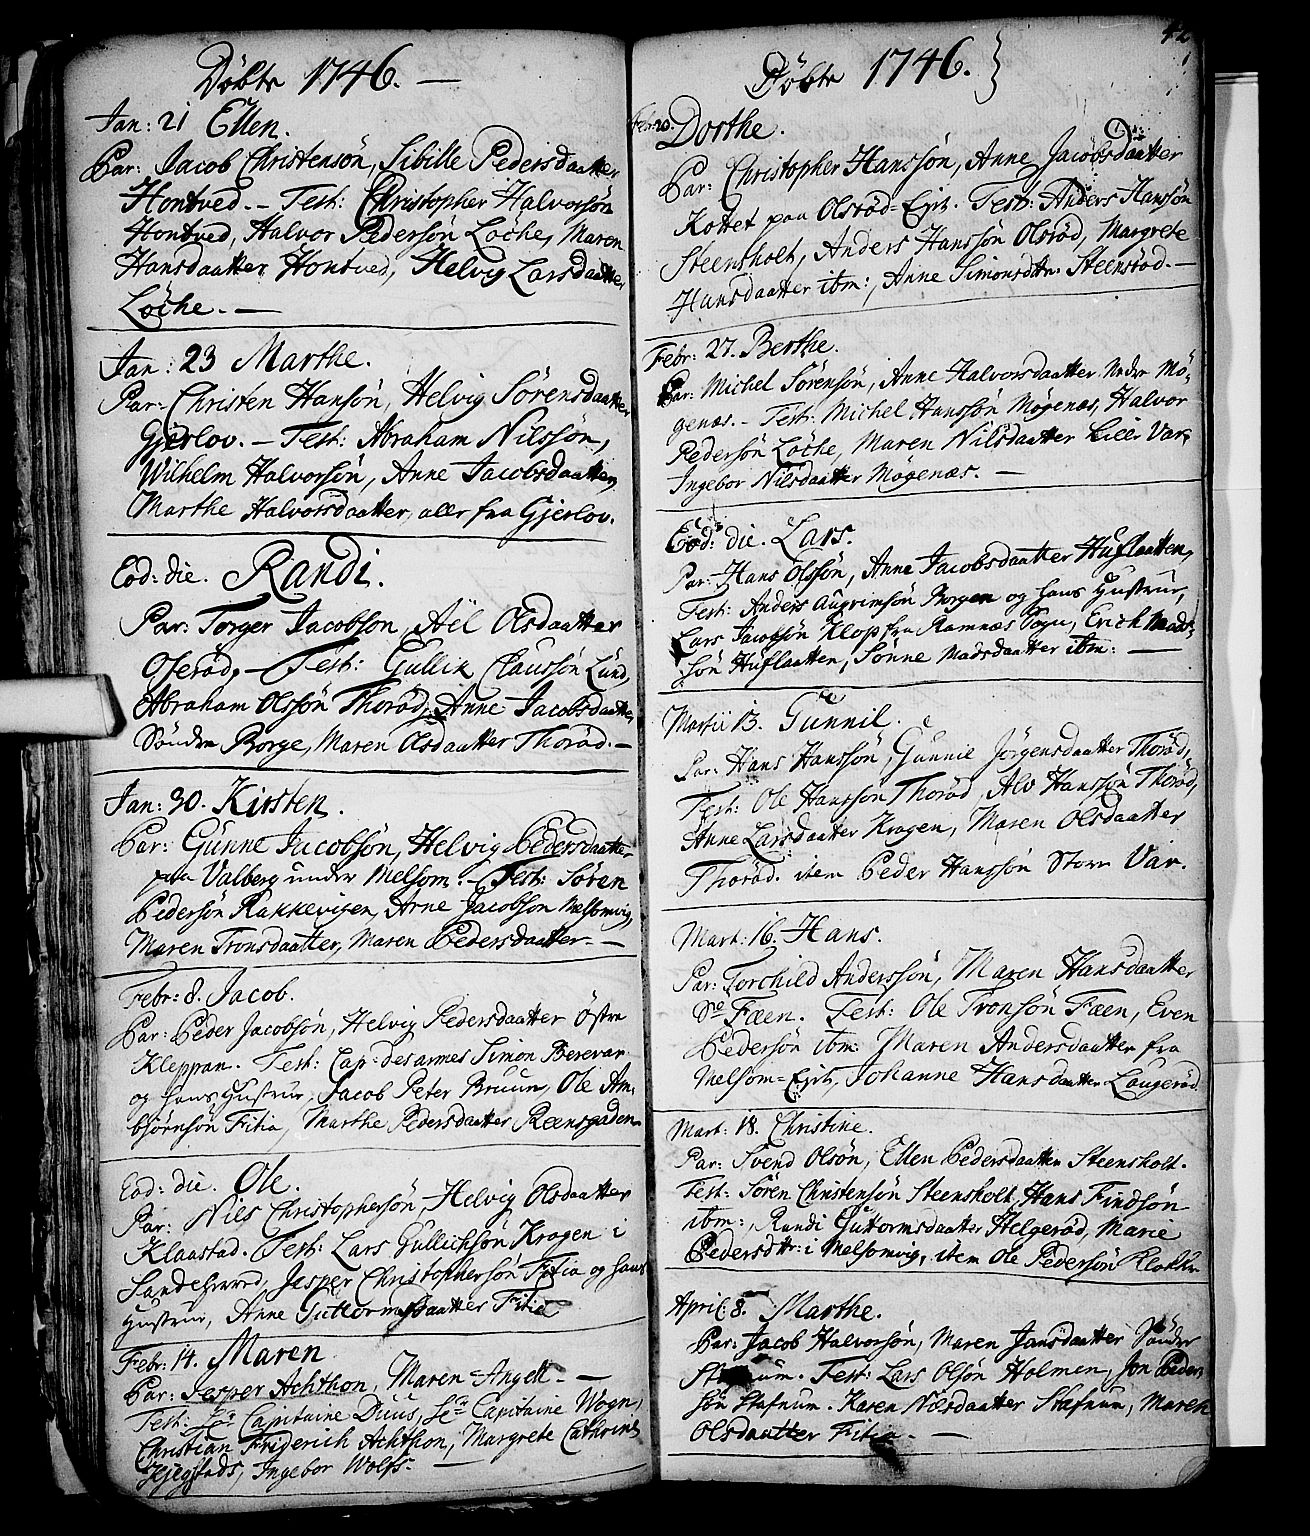 Döbte 1746. —
Jan: 21 Ellen.
Par: Jacob Christensön, Sibille Pedersdaatter
Hontved. – Test: Christopher Halvorsön
Hontved, Halvor Pedersön Löche, Maren
Hansdaatter Hontved, Helvig Larsdaatter
Löche. —
Jan: 23 Marthe.
Par: Christen Hansön, Helvig Sörensdaatter
Gjerlov. – Test: Abraham Nilssön,
Wilhelm Halvorsön, Anne Jacobsdaatter,
Marthe Halvorsdaatter, alle fra Gjerlov.
Eod: die. Randi.
Par: Torger Jacobsön, Aël Olsdaatter
Oseröd, – Test: Gullik Claussön Lund,
Abraham Olssön Thoröd, Anne Jacobsdaatter
Söndre Borge, Maren Olsdaatter Thoröd. –
Jan: 30. Kirsten.
Par: Gunne Jacobsön, Helvig Pedersdaatter
paa Valberg under Melsom. – Test: Sören
Pedersön Rakkevigen, Arne Jacobsön Melsomvig,
Maren Tronsdaatter, Maren Pedersdaatter. —
Febr: 8. Jacob.
Par: Peder Jacobsön, Helvig Pedersdaatter Östre
Kleppan. Test: Cap: des armes Simon
og hans Hustrue, Jacob Peter Bruun, Ole Am-
björnsön Fitia, Marthe Pedersdaatter
Eod: die. Ole.
Par: Nils Christophersön, Helvig Olsdaatter
Klaastad. Test: Lars Gullichsön Kragen i
Sandeherred, Jesper Christophersön Fitia og hans
Hustrue, Anne Guttormsdaatter Fitia
Febr: 14. Maren
Par: Jesper Achthon, Maren Angell. —
Test: Sr Capitaine Duus, Sr Capitaine Wogn,
Christian Friderich Achthon, Margrete Cathrine
Hjegstads, Ingebor Wolfs. —
42
Döbte 1746.
Febr: 20. Dorthe.
Par: Christopher Hanssön, Anne Jacobsdaatter
Kottet paa Olsröd-Ejet. Test: Anders Hanssön
Steensholt, Anders Hanssön Olsröd, Margrete
Hansdaatter ibm:, Anne Simonsdtter: Steensröd. —
Febr: 27. Berthe.
Par: Michel Sörensön, Anne Halvorsdaatter Nedre Mö-
genæs. – Test: Michel Hanssön Mögenæs, Halvor
Pedersön Löche, Maren Nilsdaatter Lille Var,
Ingebor Nilsdaatter Mögenæs. —
Eod: die. Lars.
Par: Hans Olssön, Anne Jacobsdaatter Huflaatten,
Test: Anders Augrimsön Borgen og hans Hustrue,
Lars Jacobsön Klop fra Ramnæs Sogn, Erich Mads-
sön Huflaatten, Sönne Madsdaatter ibm: —
Martii 13. Gunnil.
Par: Hans Hanssön, Gunnil Jörgensdaatter Thoröd,
Test: Ole Hanssön Thoröd, Alv Hanssön Thoröd,
Anne Larsdaatter Kragen, Maren Olsdaatter
Thoröd. item Peder Hanssön Store Var.
Mart: 16. Hans.
Par: Torchild Anderssön, Maren Hansdaatter
Fæen. Test: Ole Tronsön Fæen, Even
Pedersön ibm: Maren Andersdaatter fra
Melsom-Ejet, Johanne Hansdaatter Laugeröd
Mart: 18. Christine.
Par: Svend Olsön, Ellen Pedersdaatter Steensholt.
Test: Sören Christensön Steensholt, Hans Findsön
ibm:, Randi Guttormsdaatter Helgeröd, Marie
Pedersdtr: i Melsomvig, item Ole Pedersön Klokker
April: 8. Marthe.
Par: Jacob Halvorsön, Maren Jansdaatter Söndre
Stafnum. Test: Lars Olsön Holmen, Jon Peder-
sön Stafnum. Karen Nilsdaatter Stafnum, Maren
Olsdaatter Fitia. —